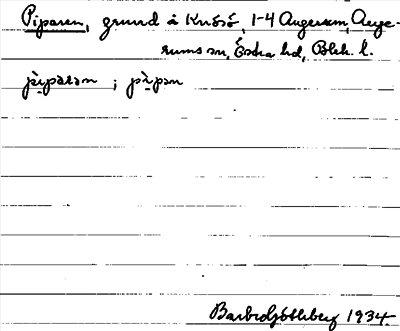 Piparen, grund å Knösö, 1-4 Augerum, Auge-
rums sn, Östra hd, Blek. l.
pìparən ; pìpən
Barbro Göthberg 1934.